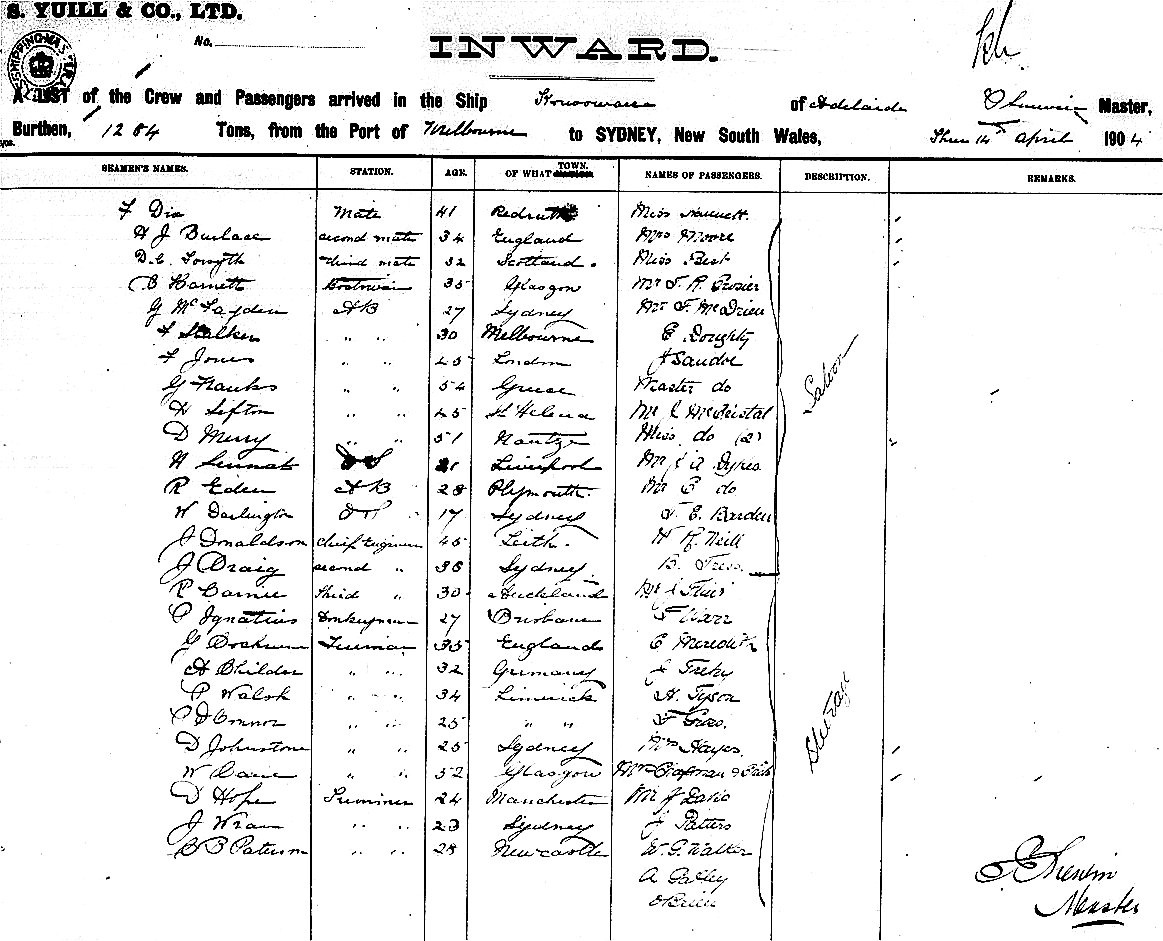 S. YUILL & CO., LTD.
No.
INWARD.
A LIST of the Crew and Passengers arrived in the Ship of Adelaide Master,
Burthen, 1284 Tons, from the Port of Melbourne to SYDNEY, New South Wales, 14th April 1904
SEAMEN'S NAMES. STATION. AGE. OF WHAT TOWN. NAMES OF PASSENGERS. DESCRIPTION. REMARKS.
F Dix Mate 41 Redruth Miss
H J Burlace second mate 34 England Mrs Moore
D.C. Forsyth third mate 32 Scotland. Miss Best
C Harnett Boatswain 35 Glasgow Mr F. R. Crosier
G McFayden AB 27 Sydney Mr F.
F Stalker " " 30 Melbourne E Doughty
F Jones " " 45 London J Sandoe
G Franks " " 54 Greece Master do
H Sefton " " 45 St Helena Mr &
D Merry " " 51 Miss do (2)
H Sennat OS 21 Liverpool Mr & A Sykes
R Eden AB 28 Plymouth. Mr E do
W Darlington OS 17 Sydney E. Barden
J Donaldson chief Engineer 45 Leith. H Neill
J Craig second " 38 Sydney B.
P Carnie third " 30 Auckland
P Ignatius Donkeyman 27 Brisbane F Warr
G Fireman 35 England E Meredith
A Childer " " 32 Germany J
P Walsh " " 34 Limerick A. Tyson
P O'Connor " " 25 " " F
D Johnstone " " 25 Sydney Mrs Hayes
W " " 52 Glasgow Mrs Chapman &
D Hope Trimmer 24 Manchester Mr J
J " " 23 Sydney J Patters
C B Paterson " " 28 Newcastle W. G. Walker
A
O'Brien
Saloon
Steerage
Master